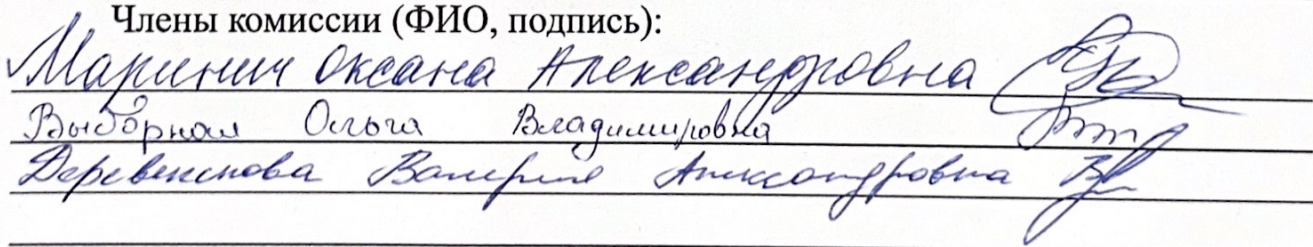 Члены комиссии (ФИО, подпись):
Маринич Оксана Александровна
Выборная Ольга Владимировна
Валерия Александровна